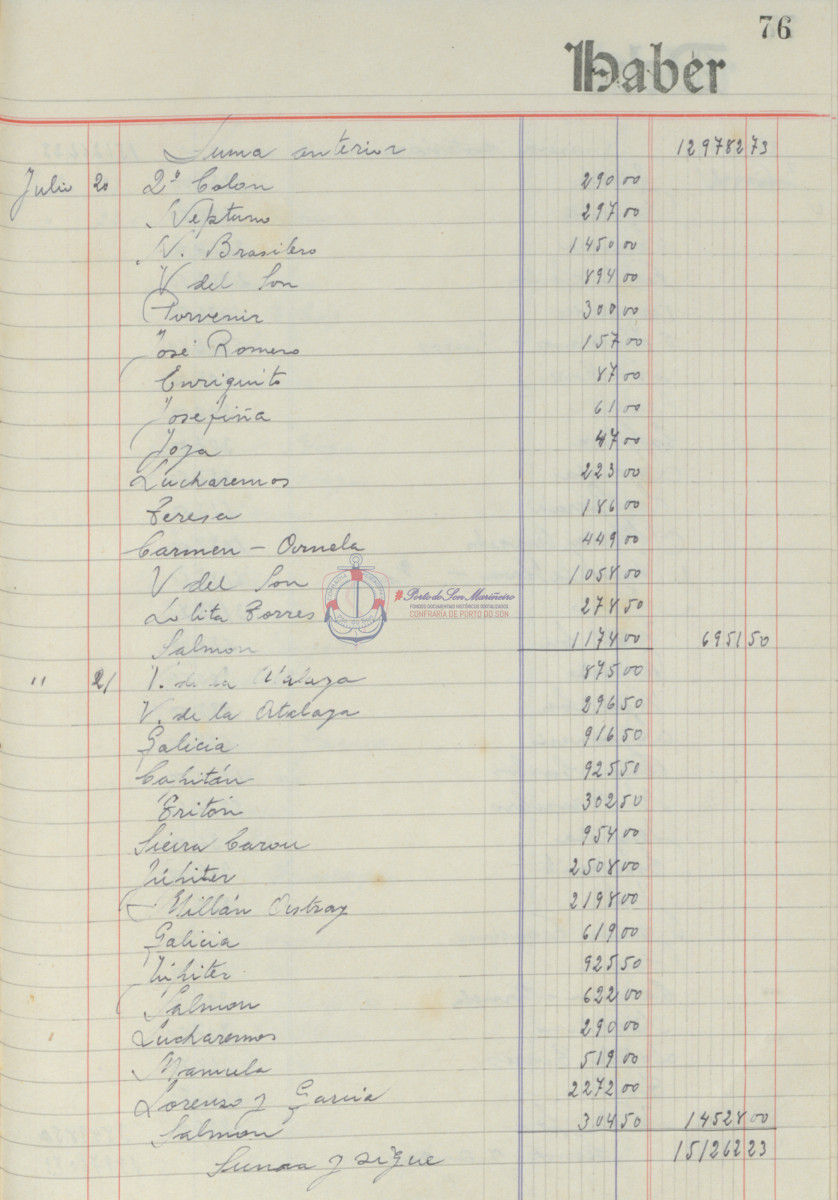 76
Haber
Suma anterior 129782 73
Julio 20 2º Colon 290 00
Neptuno 297 00
N. Brasilero 1450 00
V del Son 894 00
Porvenir 300 00
José Romero 157 00
Enriquito 87 00
Josefiña 61 00
Joya 47 00
Lucharemos 223 00
Teresa 186 00
Carmen - Ornela 449 00
V del Son 1058 00
Lolita Torres 278 50
Salmon 1174 00 6951 50
" 21 V. de la Atalaya 875 00
V. de la Atalaya 296 50
Galicia 916 50
Capitán 925 50
Triton 302 50
Sieira Carou 954 00
Júpiter 2508 00
Millán Astray 2198 00
Galicia 619 00
Júpiter 925 50
Salmon 622 00
Lucharemos 290 00
Manuela 519 00
Lorenzo y Garcia 2272 00
Salmon 304 50 14528 00
Suma y sigue 151262 23
#Porto do Son Mariñeiro
FONDOS DOCUMENTAIS HISTÓRICOS DIXITALIZADOS
CONFRARÍA DE PORTO DO SON